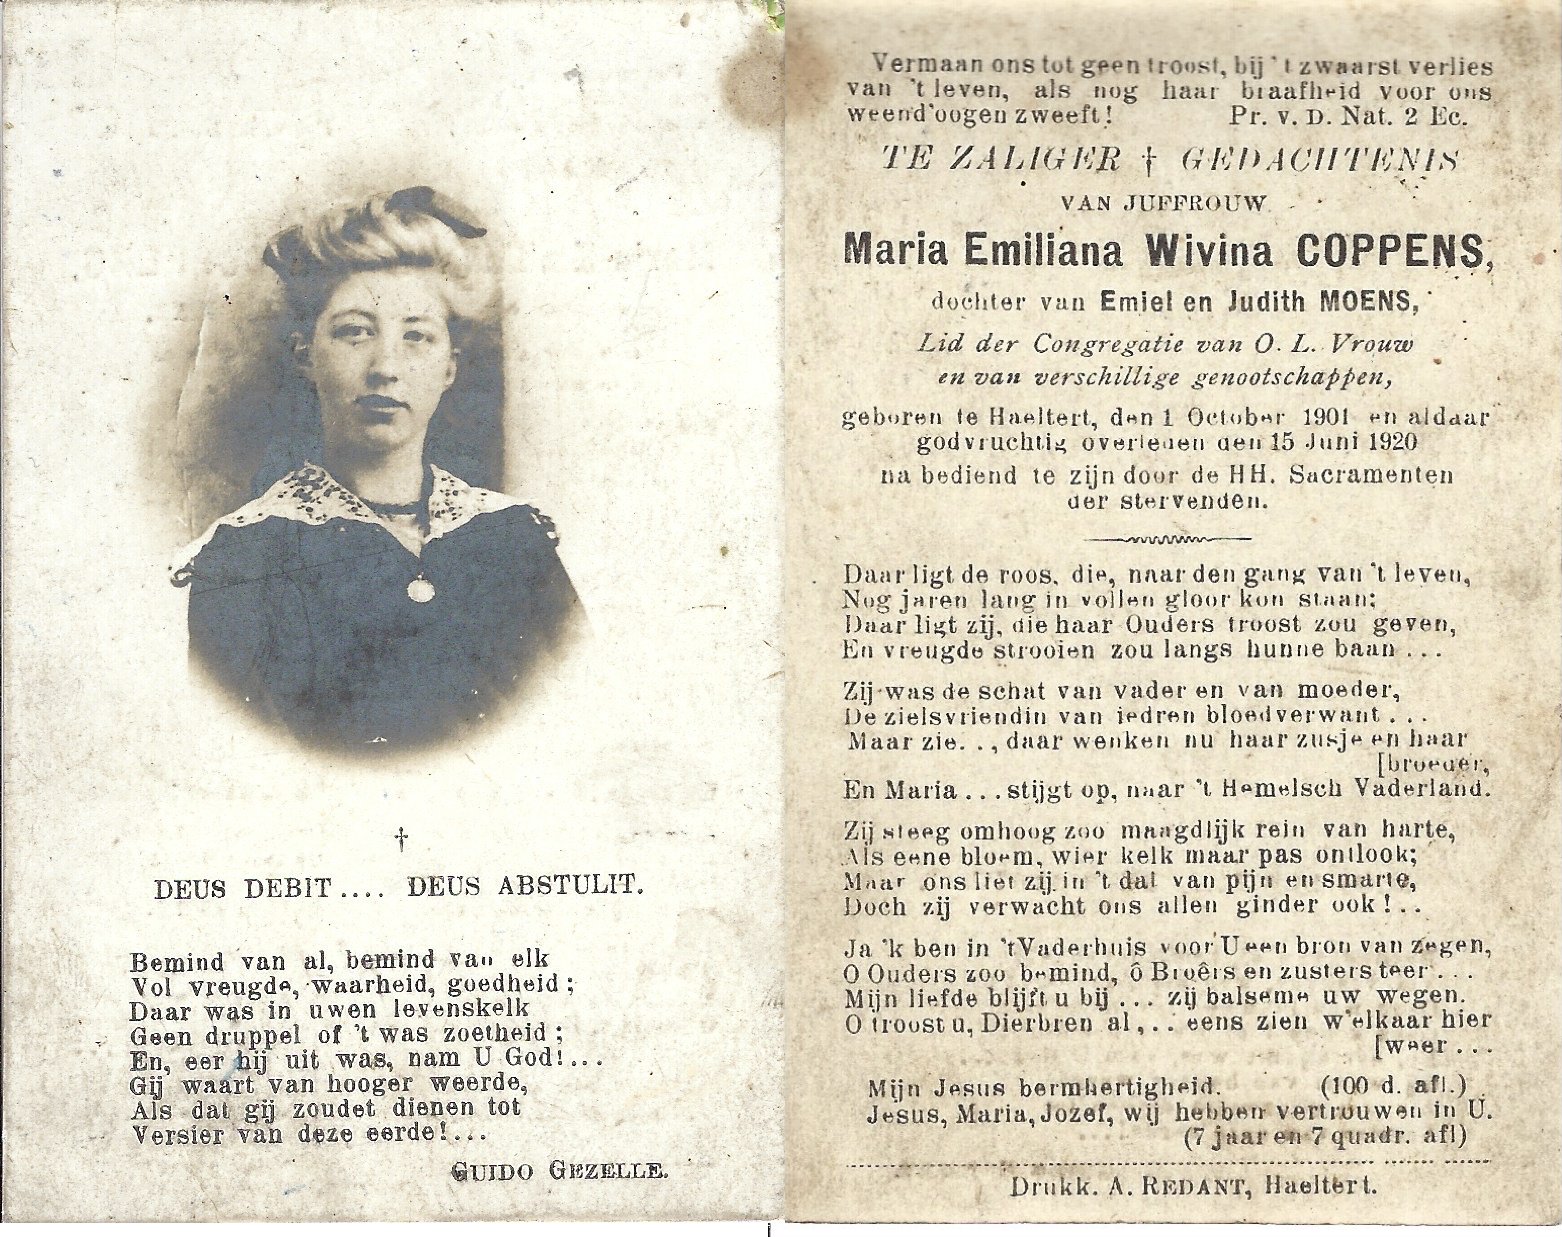 †
DEUS DEBIT.... DEUS ABSTULIT.
Bemind van al, bemind van elk
Vol vreugde, waarheid, goedheid ;
Daar was in uwen levenskelk
Geen druppel of 't was zoetheid ;
En, eer hij uit was, nam U God!...
Gij waart van hooger weerde,
Als dat gij zoudet dienen tot
Versier van deze eerde!...
GUIDO GEZELLE.
Vermaan ons tot geen troost, bij 't zwaarst verlies
van 't leven, als nog haar braafheid voor ons
weend'oogen zweeft! Pr. v. D. Nat. 2 Ec.
TE ZALIGER † GEDACHTENIS
VAN JUFFROUW
Maria Emiliana Wivina COPPENS,
dochter van Emiel en Judith MOENS,
Lid der Congregatie van O. L. Vrouw
en van verschillige genootschappen,
geboren te Haeltert, den 1 October 1901 en aldaar
godvruchtig overleden den 15 Juni 1920
na bediend te zijn door de HH. Sacramenten
der stervenden.
Daar ligt de roos, die, naar den gang van 't leven,
Nog jaren lang in vollen gloor kon staan;
Daar ligt zij, die haar Ouders troost zou geven,
En vreugde strooien zou langs hunne baan ...
Zij was de schat van vader en van moeder,
De zielsvriendin van iedren bloedverwant ...
Maar zie..., daar wenken nu haar zusje en haar
[broeder,
En Maria ... stijgt op, naar 't Hemelsch Vaderland.
Zij steeg omhoog zoo maagdlijk rein van harte,
Als eene bloem, wier kelk maar pas ontlook;
Maar ons liet zij in 't dal van pijn en smarte,
Doch zij verwacht ons allen ginder ook!...
Ja 'k ben in 't Vaderhuis voor U een bron van zegen,
O Ouders zoo bemind, ô Broêrs en zusters teer ...
Mijn liefde blijft u bij ... zij balseme uw wegen.
O troost u, Dierbren al,... eens zien w'elkaar hier
[weer ...
Mijn Jesus bermhertigheid. (100 d. afl.)
Jesus, Maria, Jozef, wij hebben vertrouwen in U.
(7 jaar en 7 quadr. afl)
Drukk. A. REDANT, Haeltert.